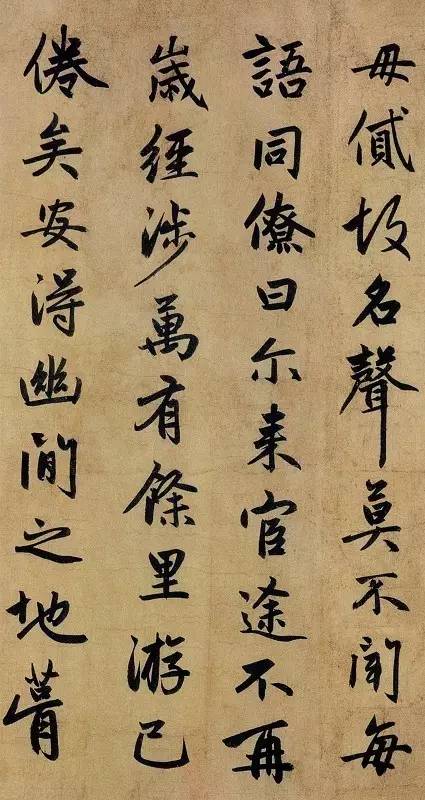 毋貳故名聲莫不聞每
語同僚曰尒来官途不再
歲經涉萬有餘里游已
倦矣安得幽閒之地